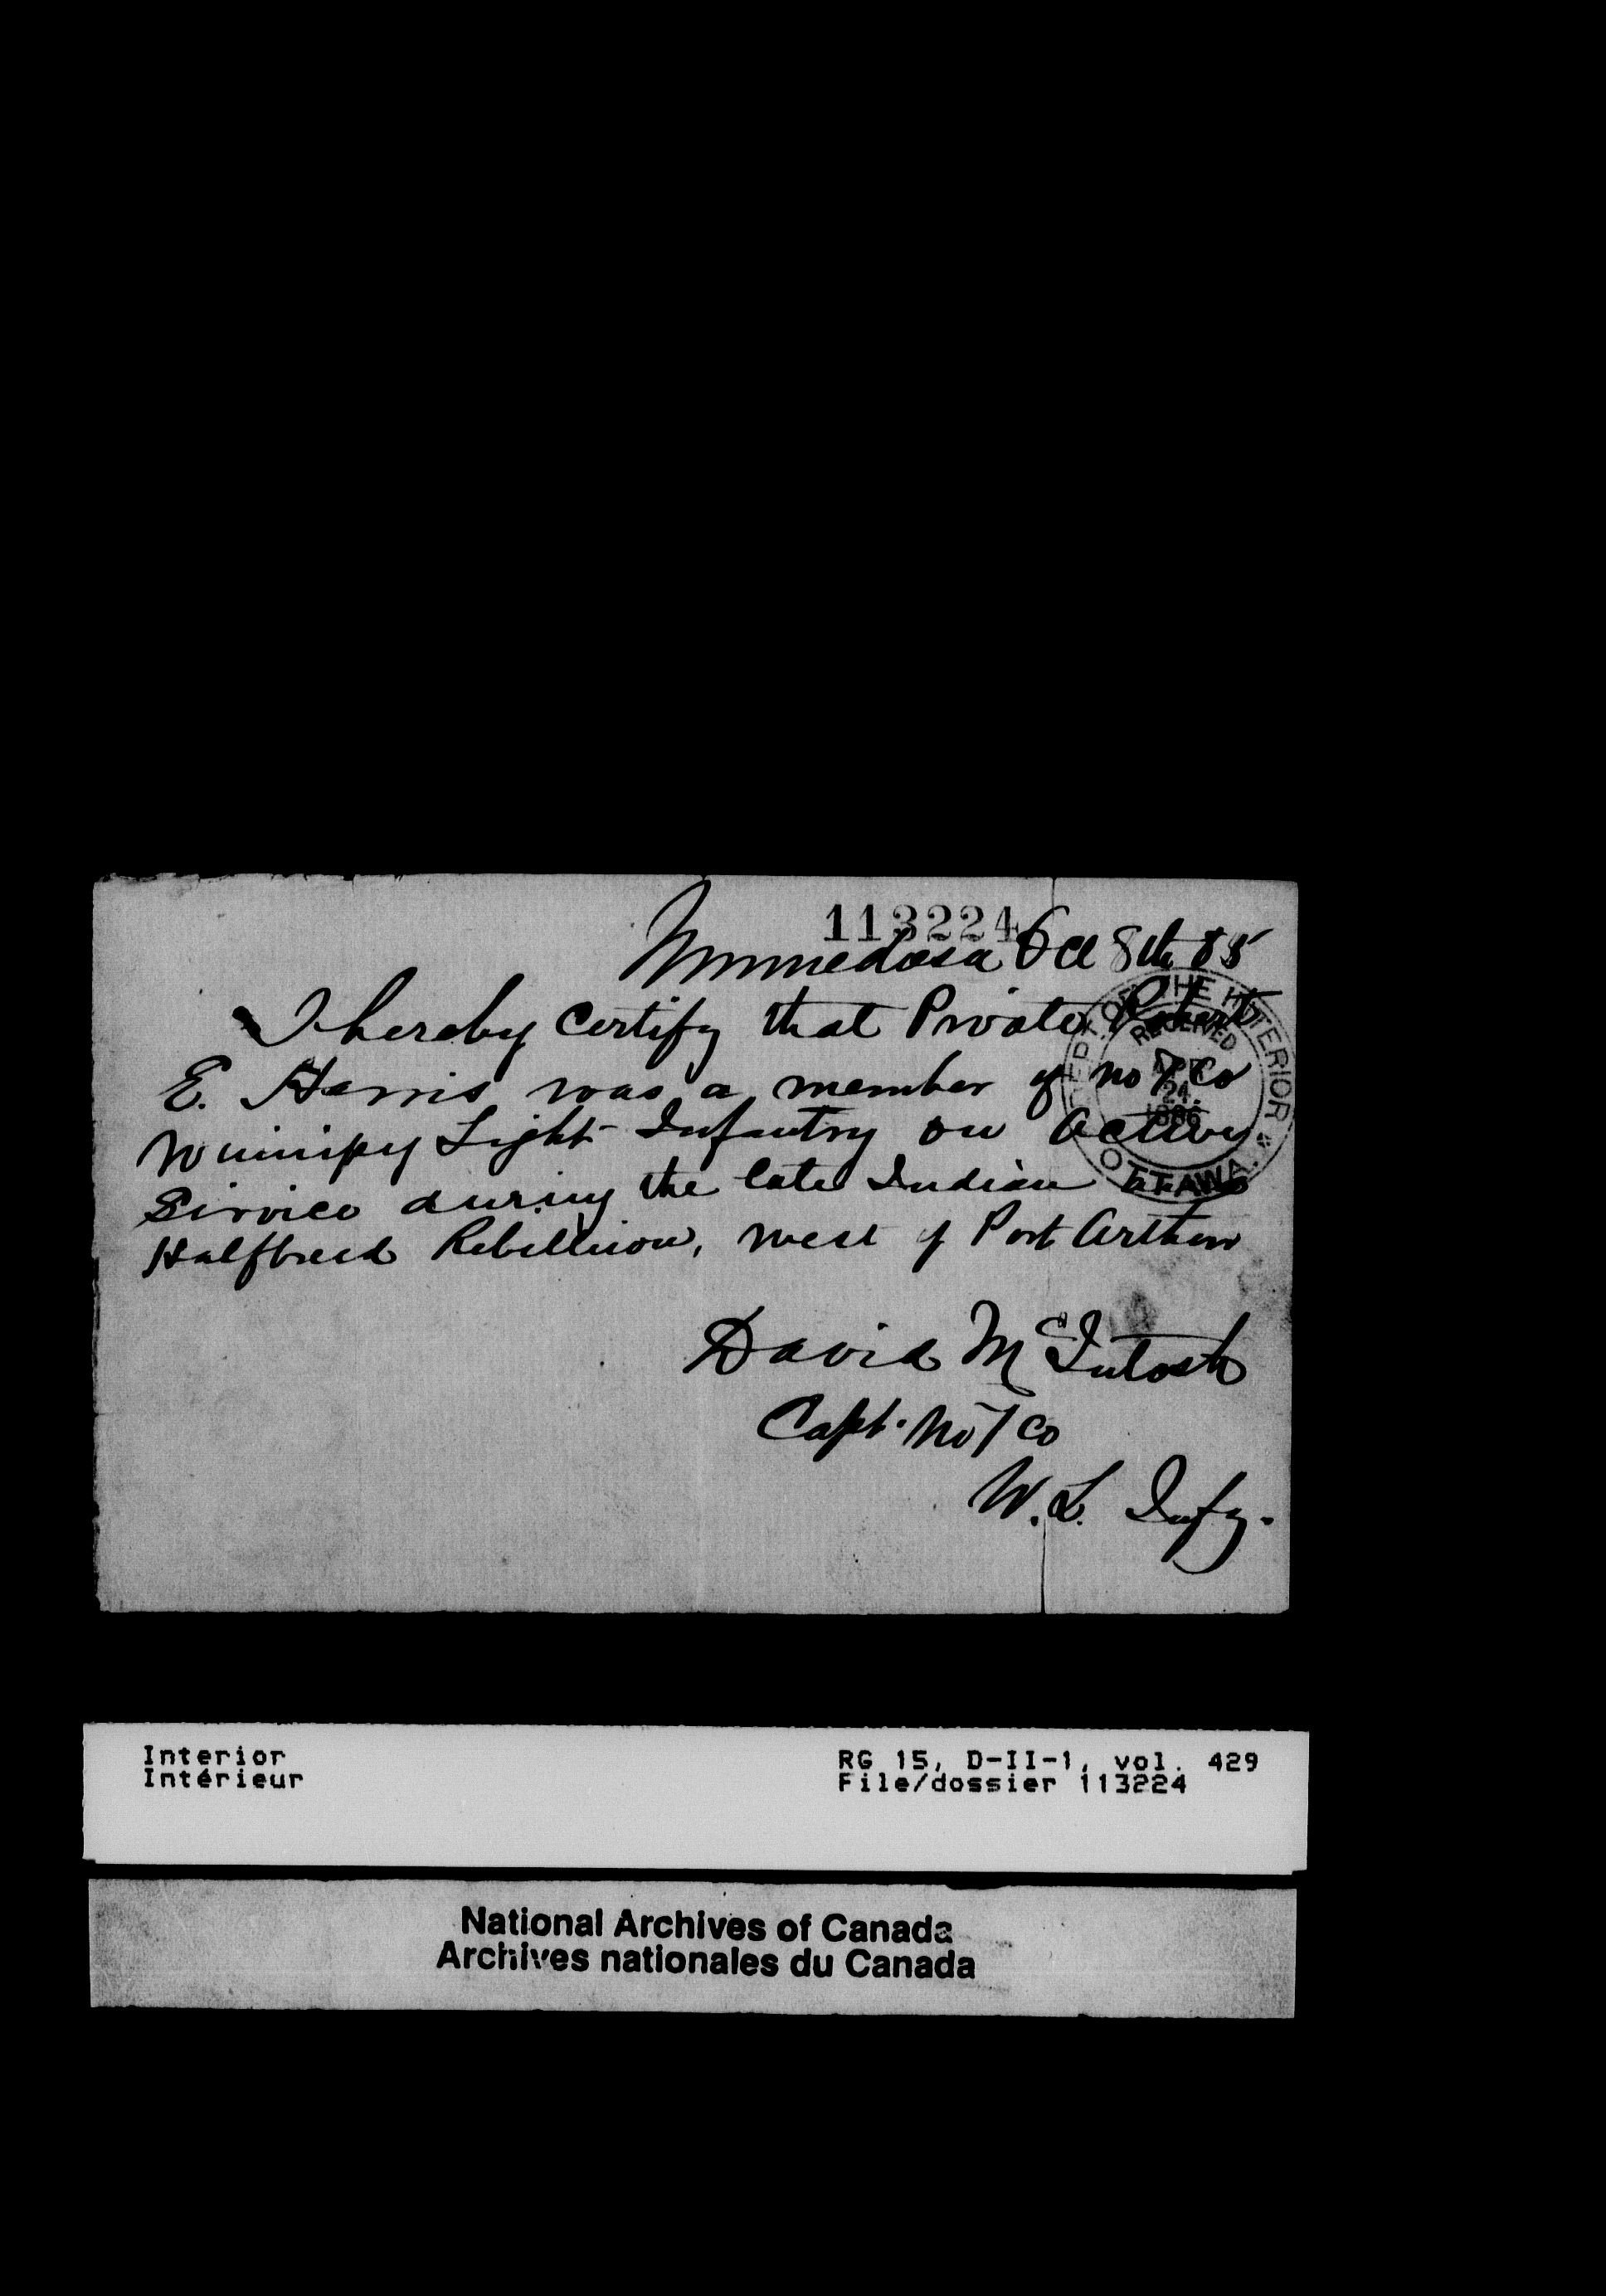 113224
Minnedosa Oct 8th 85
I hereby Certify that Private Robert
E. Harris was a member of No 7 Co
Winnipeg Light Infantry on Active
Service during the late Indian
Halfbreed Rebellion, West of Port Arthur
David McIntosh
Capt. No 7 Co
W. L. Infy.
DEPT. OF THE INTERIOR
RECEIVED
24.
1886
OTTAWA.
Interior
Intérieur
RG 15, D-II-1, vol. 429
File/dossier 113224
National Archives of Canada
Archives nationales du Canada